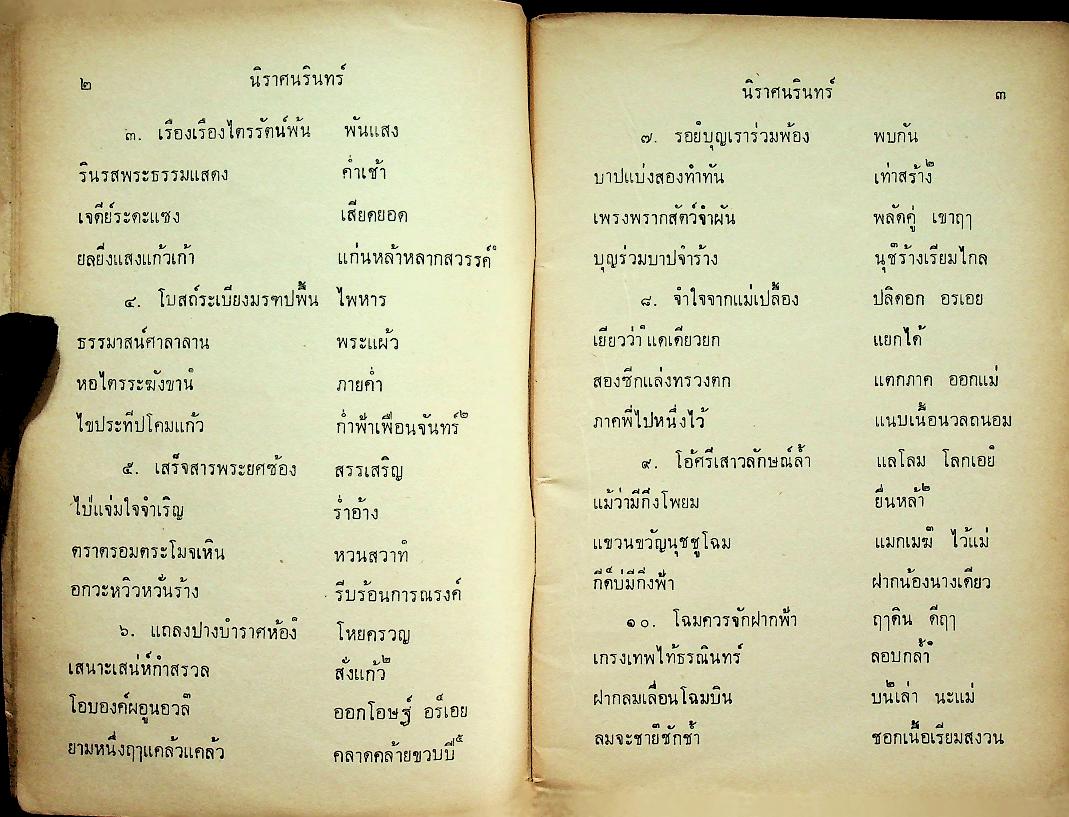 ๒ นิราศนรินทร์
๓. เรืองเรืองไตรรัตน์พ้น พันแสง
รินรสพระธรรมแสดง ค่ำเช้า
เจดีย์ระดะแซง เสียดยอด
ยลยิ่งแสงแก้วเก้า แก่นหล้าหลากสวรรค์๑
๔. โบสถ์ระเบียงมรฑปพื้น ไพหาร
ธรรมาสน์ศาลาลาน พระแผ้ว
หอไตรระฆังขาน ภายค่ำ
ไขประทีปโคมแก้ว ก่ำฟ้าเฟือนจันทร์๒
๕. เสร็จสารพระยศซ้อง สรรเสริญ
ไป่แจ่มใจจำเริญ ร่ำอ้าง
ตราตรอมตระโมจเหิน หวนสวาท
อกวะหวิวหวั่นร้าง รีบร้อนการณรงค์
๖. แถลงปางบำราศห้อง โหยครวญ
เสนาะเสน่ห์กำสรวล สั่งแก้ว๒
โอบองค์ผอูนอวล ออกโอษฐ์ อร็เอย
ยามหนึ่งฤๅแคล้วแคล้ว คลาดคล้ายขวบปี๕
นิราศนรินทร์ ๓
๗. รอยบุญเราร่วมพ้อง พบกัน
บาปแบ่งสองทำทัน เท่าสร้าง๒
เพรงพรากสัตว์จำผัน พลัดคู่ เขาฤๅ
บุญร่วมบาปจำร้าง นุชร้างเรียมไกล
๘. จำใจจากแม่เปลื้อง ปลิดอก อรเอย
เยียวว่าแดเดียวยก แยกได้
สองซีกแล่งทรวงตก แตกภาค ออกแม่
ภาคพี่ไปหนึ่งไว้ แนบเนื้อนวลถนอม
๙. โอ้ศรีเสาวลักษณ์ล้ำ แลโลม โลกเอย
แม้ว่ามีกิ่งโพยม ยื่นหล้า๒
แขวนขวัญนุชชูโฉม แมกเมฆ ไว้แม่
กีดบ่มีกิ่งฟ้า ฝากน้องนางเดียว
๑๐. โฉมควรจักฝากฟ้า ฤๅดิน ดีฤๅ
เกรงเทพไท้ธรณินทร์ ลอบกล้ำ
ฝากลมเลื่อนโฉมบิน บนเล่า นะแม่
ลมจะชายชักช้ำ ชอกเนื้อเรียมสงวน